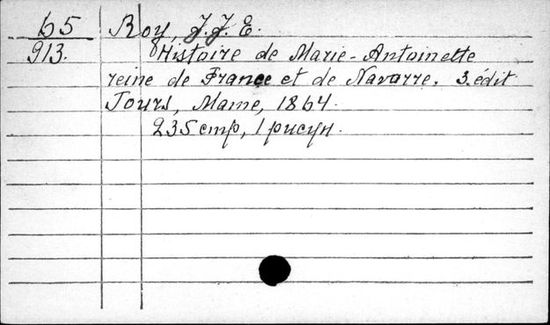 65 Roy, J. J. E.
913. Histoire de Marie-Antoinette
reine de France et de Navarre. 3. édit
Tours, Mame, 1864.
235 стр, 1 рисун.